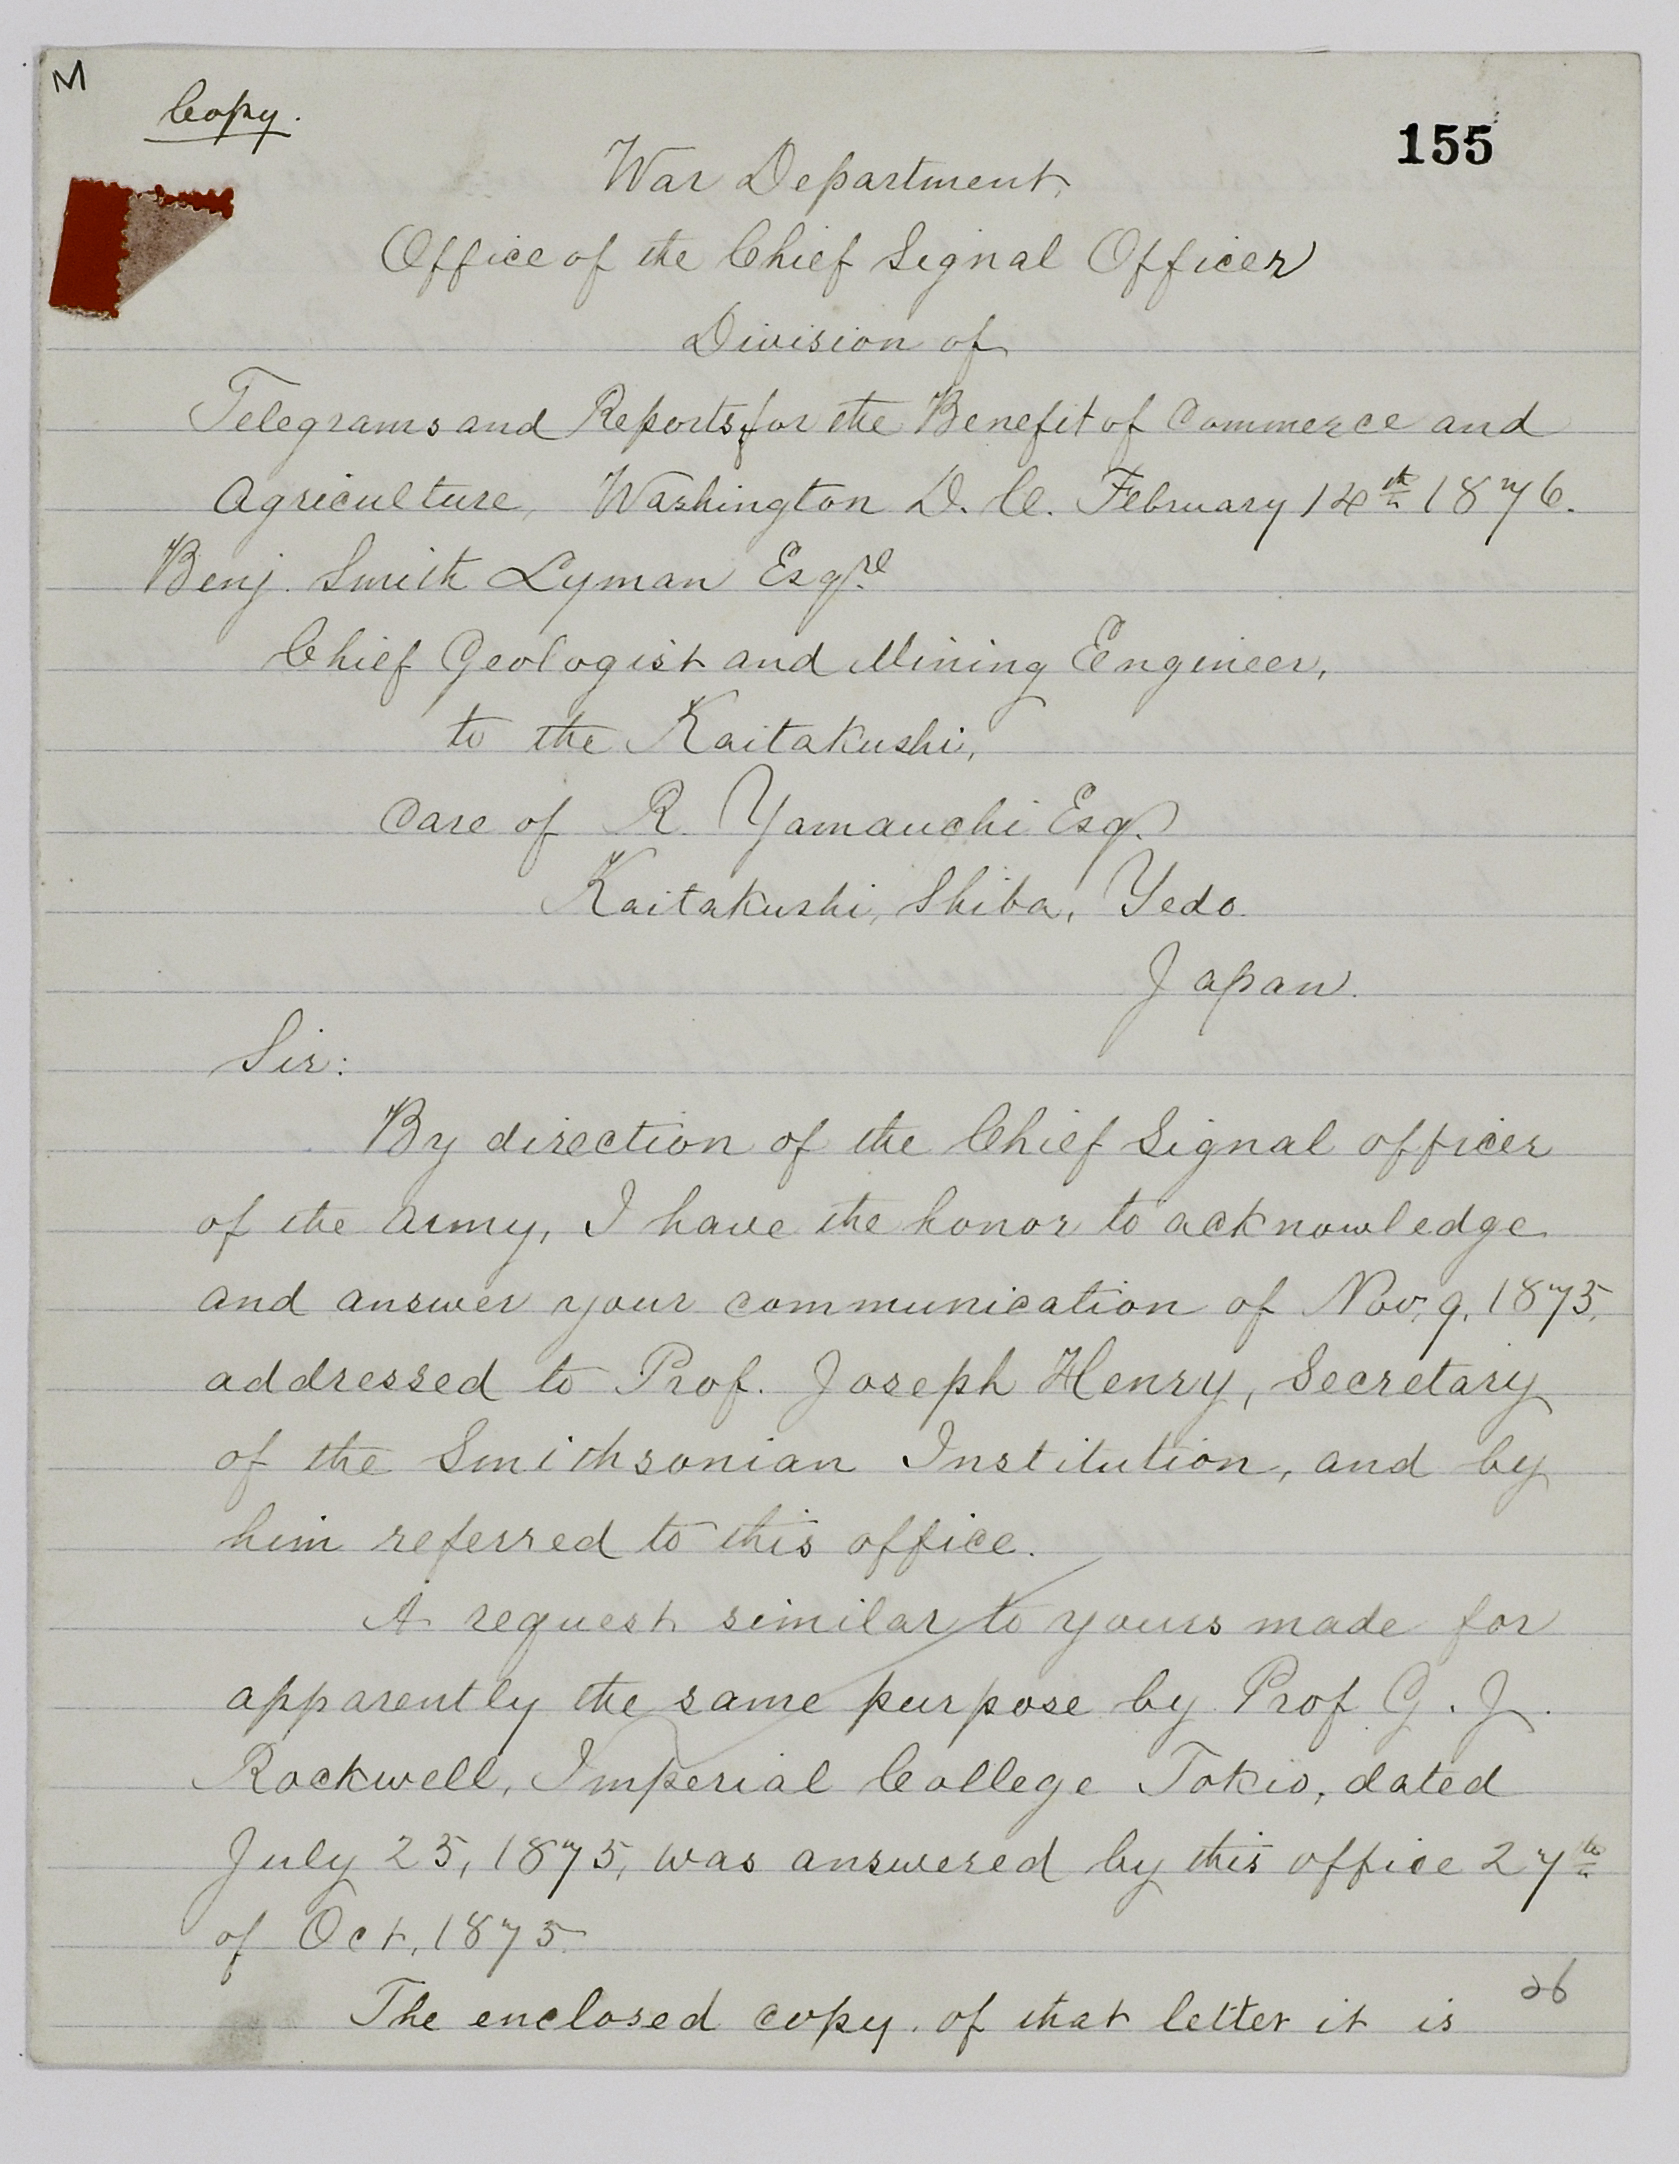 M
Copy.
155
War Department,
Office of the Chief Signal Officer
Division of
Telegrams and Reports for the Benefit of Commerce and
Agriculture, Washington D. C. February 14th 1876.
Benj. Smith Lyman Esqre
Chief Geologist and Mining Engineer,
to the Kaitakushi,
Care of R. Yamauchi Esq.
Kaitakushi, Shiba, Yedo.
Japan.
Sir:
By direction of the Chief Signal officer
of the Army, I have the honor to acknowledge
and answer your communication of Nov. 9, 1875,
addressed to Prof. Joseph Henry, Secretary
of the Smithsonian Institution, and by
him referred to this office.
A request similar to yours made for
apparently the same purpose by Prof G. J.
Rockwell, Imperial College Tokio, dated
July 25, 1875, was answered by this office 27th
of Oct, 1875.
The enclosed copy of that letter it is
26